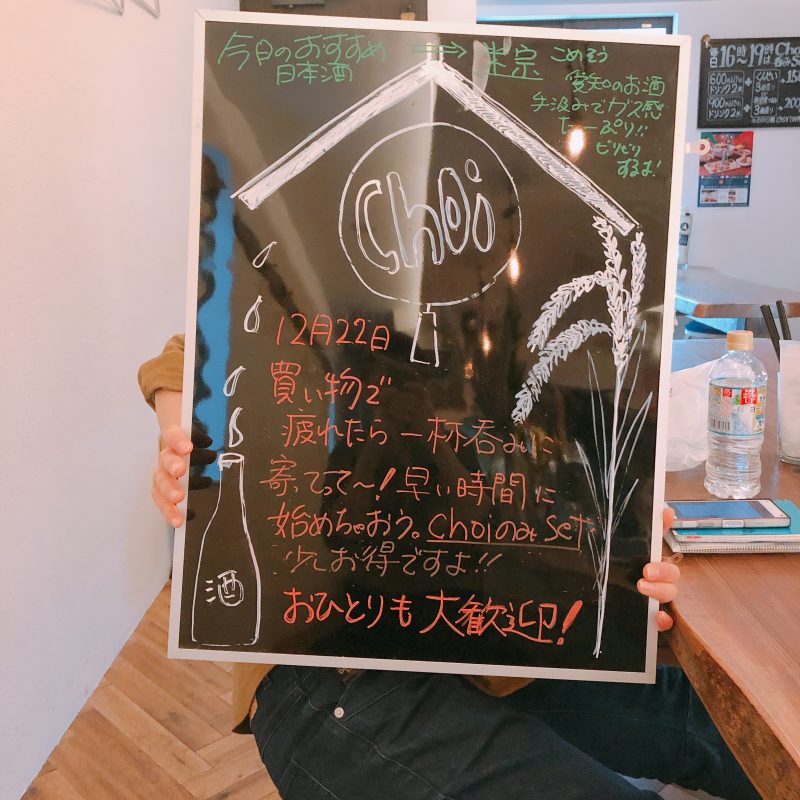 今日のおすすめ
日本酒
⇒ 米宗 こめそう
愛知のお酒
手汲みでガス感
たーっぷり!!
ピリピリ
するよ!
choi
12月22日
買い物で
疲れたら 一杯呑みに
寄ってって〜! 早い時間に
始めちゃおう。choiのみ set
少しお得ですよ!!
おひとりも 大歓迎!
酒
毎日16時〜19時は
600
ドリンク2杯
900
ドリンク2杯